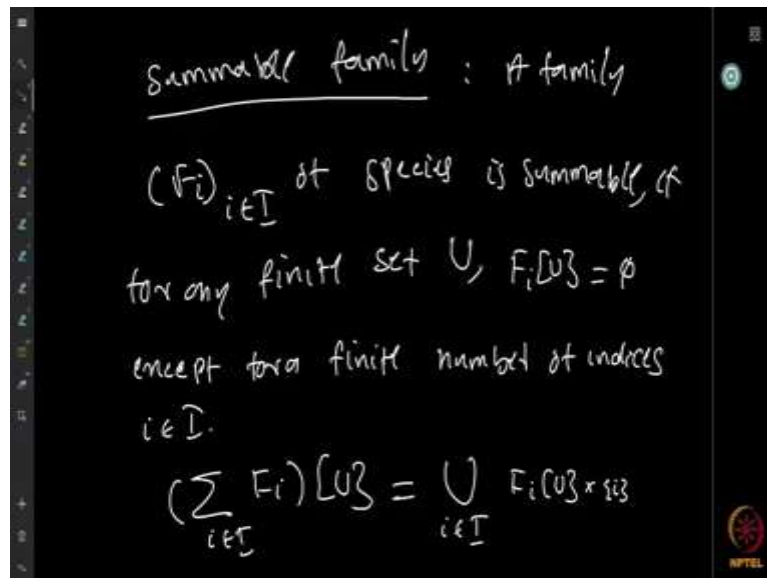 Summable family : A family
(Fi) i∈I of species is summable, if
for any finite set U, Fi[U] = φ
except for a finite number of indices
i ∈ I.
(∑ i∈I Fi) [U] = ⋃ i∈I Fi[U] × {i}
NPTEL